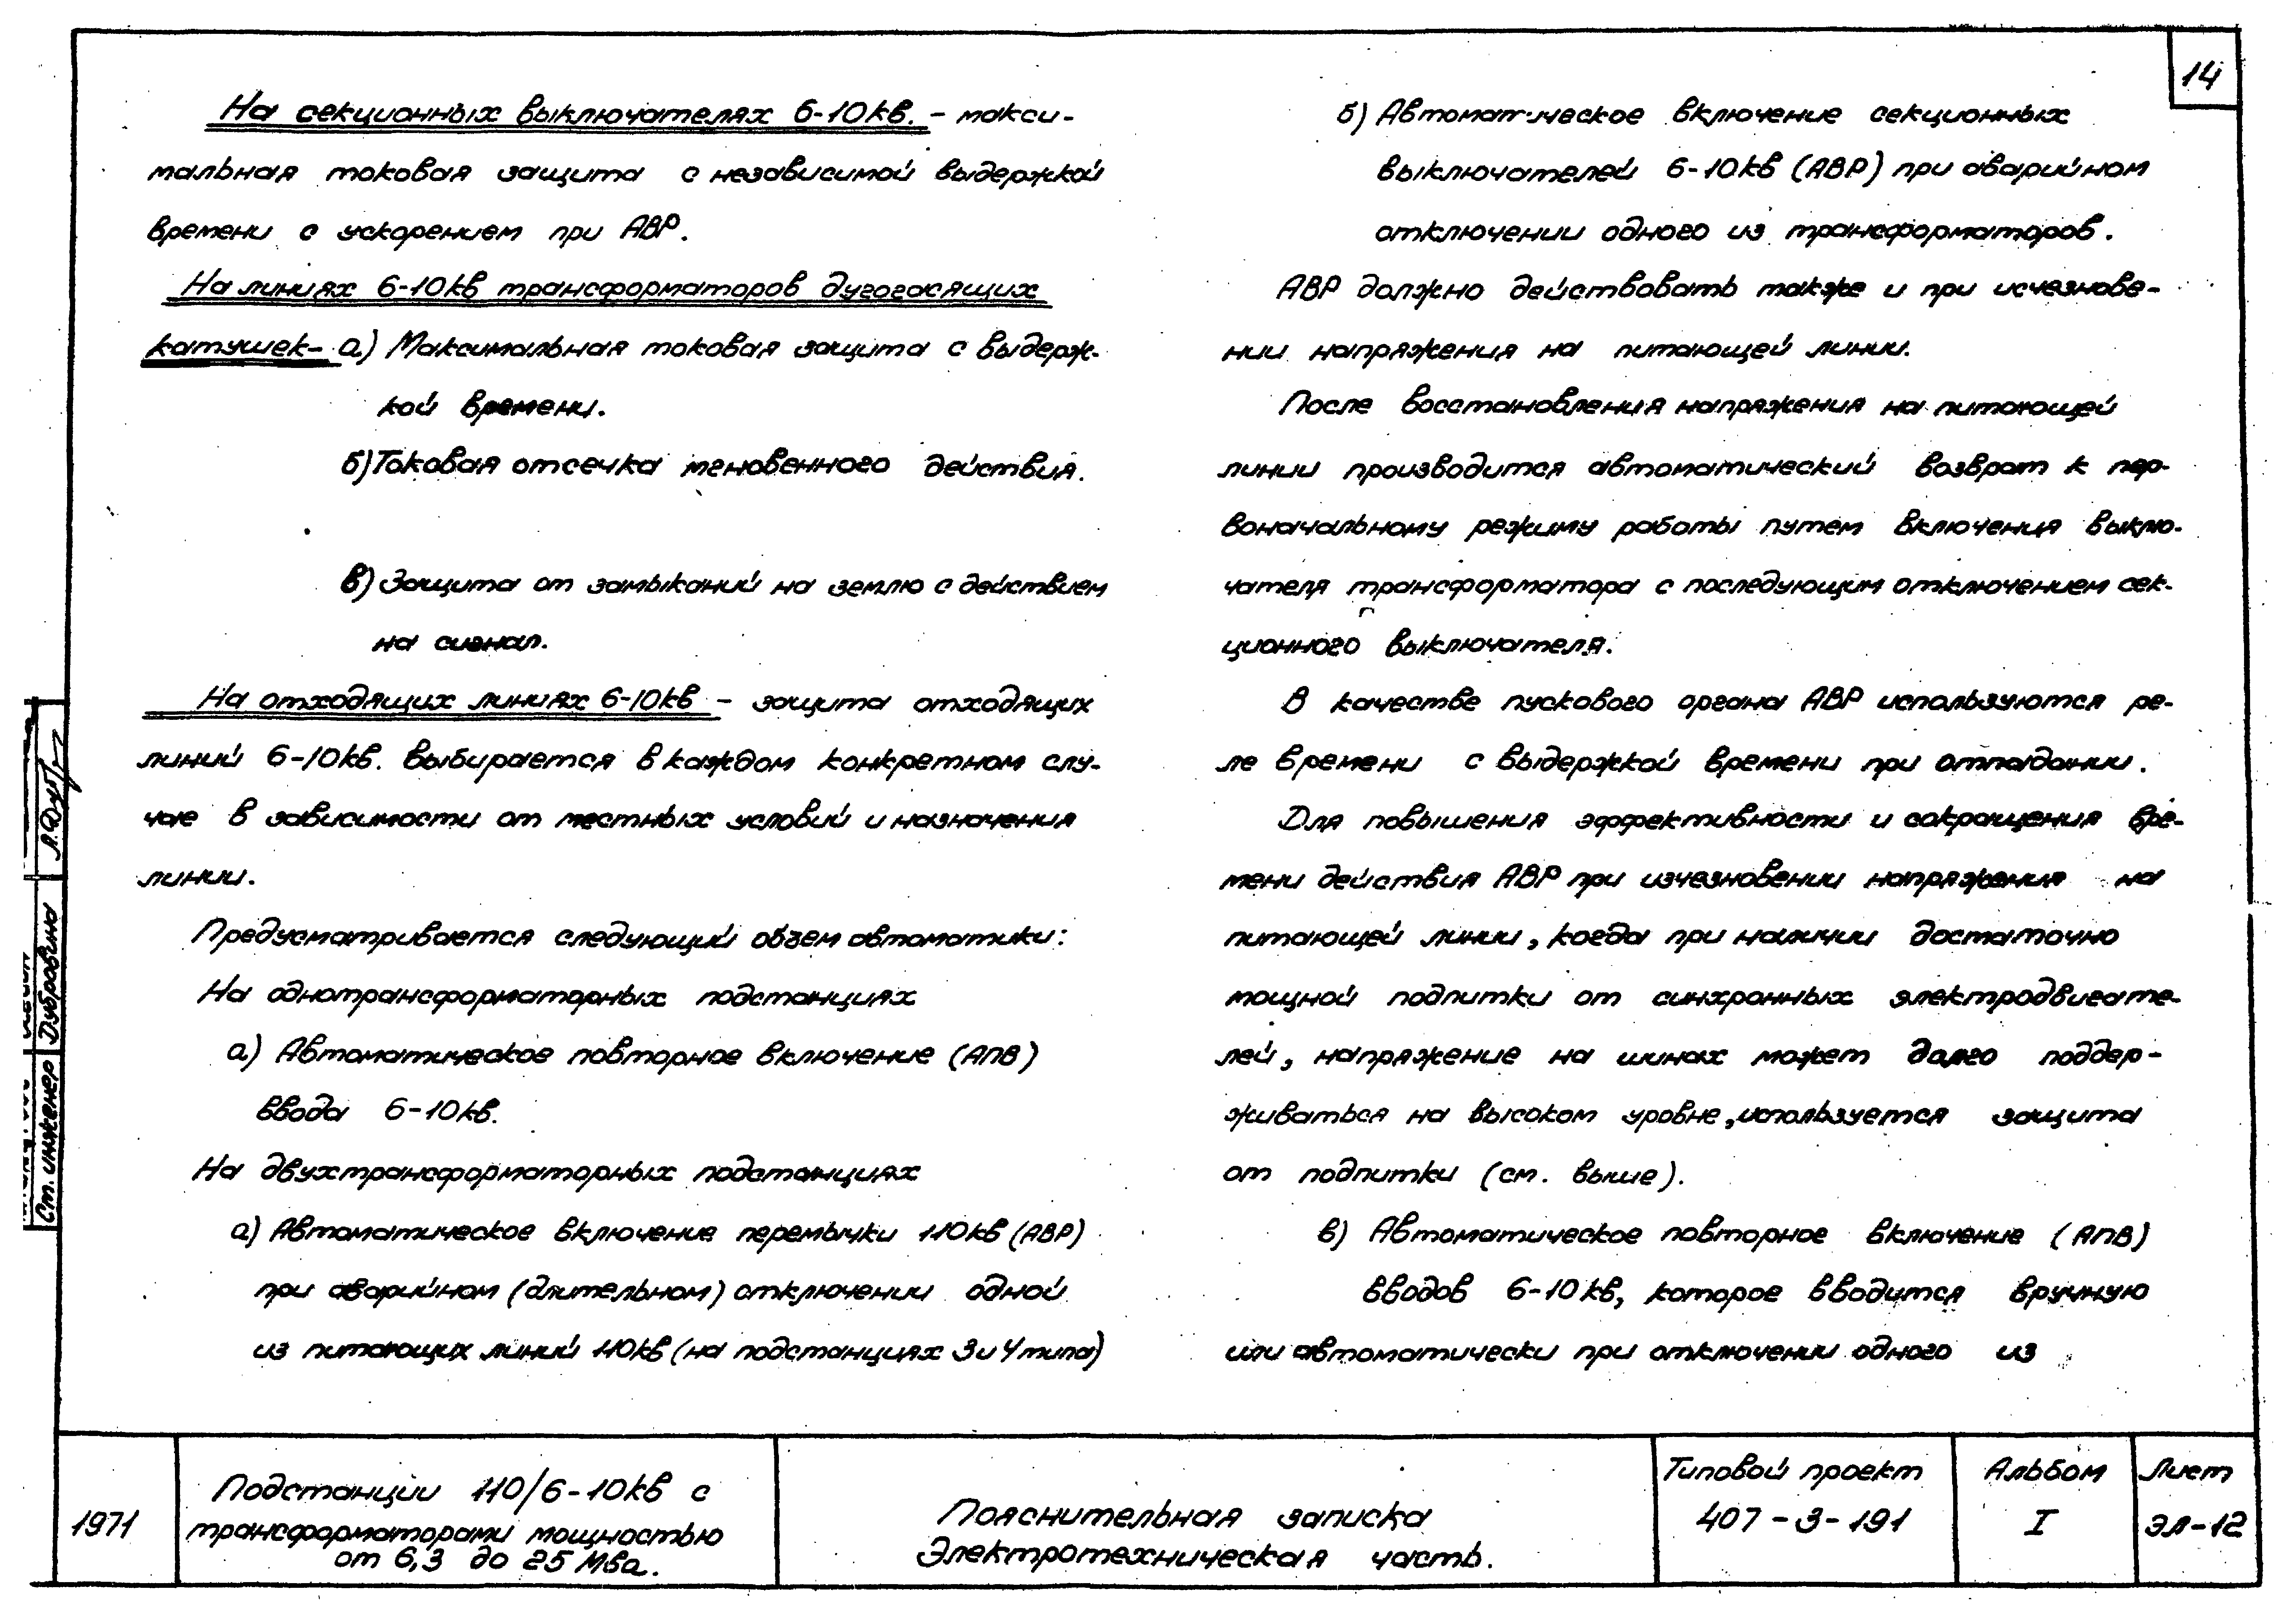 14
На секционных выключателях 6-10кв. - макси-
мальная токовая защита с независимой выдержкой
времени с ускорением при АВР.
На линиях 6-10кв трансформаторов дугогасящих
катушек- а) Максимальная токовая защита с выдерж-
кой времени.
б) Токовая отсечка мгновенного действия.
в) Защита от замыканий на землю с действием
на сигнал.
На отходящих линиях 6-10кв - защита отходящих
линий 6-10кв. выбирается в каждом конкретном слу-
чае в зависимости от местных условий и назначения
линии.
Предусматривается следующий объем автоматики:
На однотрансформаторных подстанциях
а) Автоматическое повторное включение (АПВ)
ввода 6-10кв.
На двухтрансформаторных подстанциях
а) Автоматическое включение перемычки 110кв (АВР)
при аварийном (длительном) отключении одной
из питающих линий 110кв (на подстанциях 3 и 4 типа)
б) Автоматическое включение секционных
выключателей 6-10кв (АВР) при аварийном
отключении одного из трансформаторов.
АВР должно действовать также и при исчезнове-
нии напряжения на питающей линии.
После восстановления напряжения на питающей
линии производится автоматический возврат к пер-
воначальному режиму работы путем включения выклю-
чателя трансформатора с последующим отключением сек-
ционного выключателя.
В качестве пускового органа АВР используются ре-
ле времени с выдержкой времени при отпадании.
Для повышения эффективности и сокращения вре-
мени действия АВР при изчезновении напряжения на
питающей линии, когда при наличии достаточно
мощной подпитки от синхронных электродвигате-
лей, напряжение на шинах может долго поддер-
живаться на высоком уровне, используется защита
от подпитки (см. выше).
в) Автоматическое повторное включение (АПВ)
вводов 6-10кв, которое вводится вручную
или автоматически при отключении одного из
Ст. инженер Дубровина
1971
Подстанции 110/6-10кв с
трансформаторами мощностью
от 6,3 до 25 Мва.
Пояснительная записка
Электротехническая часть.
Типовой проект
407-3-191
Альбом
I
Лист
ЭЛ-12